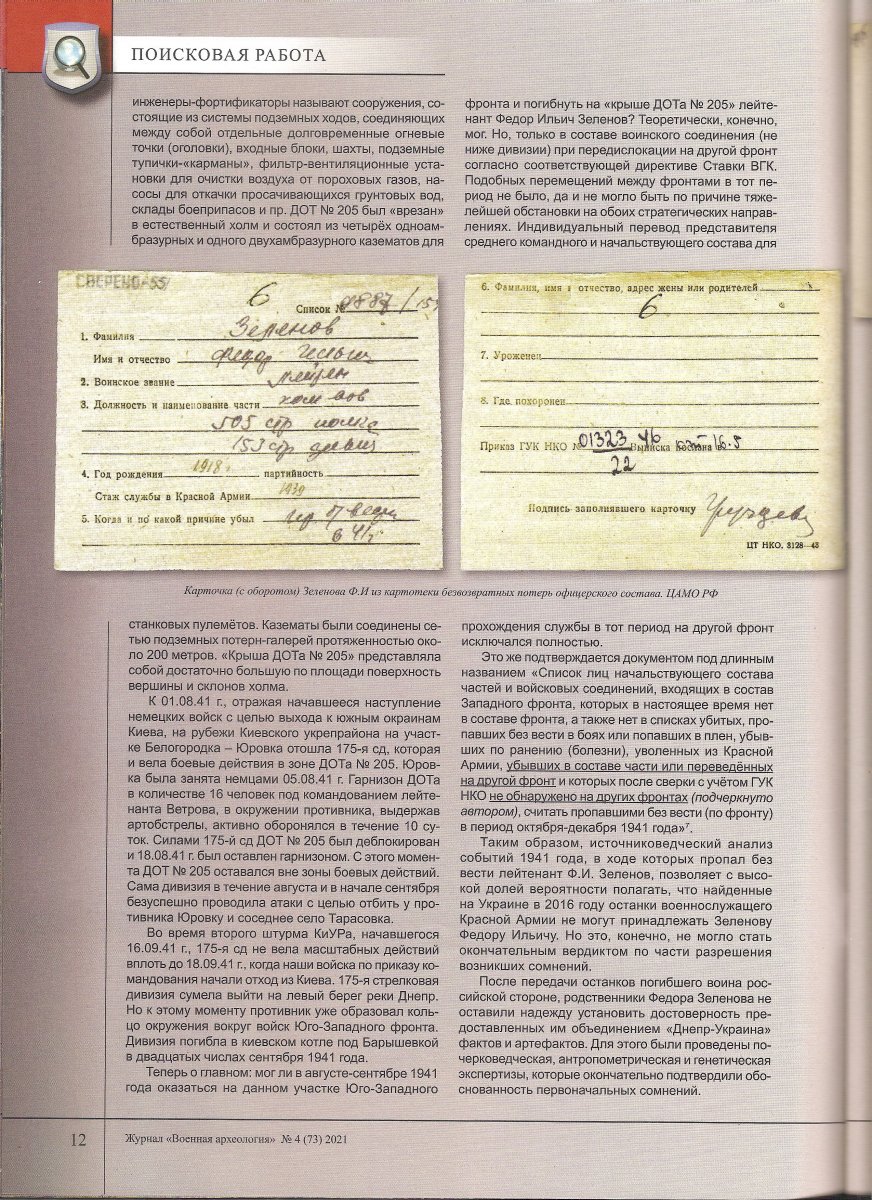 ПОИСКОВАЯ РАБОТА
инженеры-фортификаторы называют сооружения, со-
стоящие из системы подземных ходов, соединяющих
между собой отдельные долговременные огневые
точки (оголовки), входные блоки, шахты, подземные
тупички-«карманы», фильтр-вентиляционные уста-
новки для очистки воздуха от пороховых газов, на-
сосы для откачки просачивающихся грунтовых вод,
склады боеприпасов и пр. ДОТ № 205 был «врезан»
в естественный холм и состоял из четырёх одноам-
бразурных и одного двухамбразурного казематов для
фронта и погибнуть на «крыше ДОТа № 205» лейте-
нант Федор Ильич Зеленов? Теоретически, конечно,
мог. Но, только в составе воинского соединения (не
ниже дивизии) при передислокации на другой фронт
согласно соответствующей директиве Ставки ВГК.
Подобных перемещений между фронтами в тот пе-
риод не было, да и не могло быть по причине тяже-
лейшей обстановки на обоих стратегических направ-
лениях. Индивидуальный перевод представителя
среднего командного и начальствующего состава для
СВЕРЕНО-55
6
Список №
1. Фамилия Зеленов
Имя и отчество Федор Ильич
2. Воинское звание лейтен
3. Должность и наименование части ком вов
505 стр полка
153 стр дивиз
4. Год рождения 1918г партийность
Стаж службы в Красной Армии 1939
5. Когда и по какой причине убыл
6. Фамилия, имя и отчество, адрес жены или родителей
6
7. Уроженец
8. Где похоронен
Приказ ГУК НКО № 01323 46 Выписка послана
22
Подпись заполнявшего карточку
ЦТ НКО. 3128—45
Карточка (с оборотом) Зеленова Ф.И из картотеки безвозвратных потерь офицерского состава. ЦАМО РФ
станковых пулемётов. Казематы были соединены се-
тью подземных потерн-галерей протяженностью око-
ло 200 метров. «Крыша ДОТа № 205» представляла
собой достаточно большую по площади поверхность
вершины и склонов холма.
К 01.08.41 г., отражая начавшееся наступление
немецких войск с целью выхода к южным окраинам
Киева, на рубежи Киевского укрепрайона на участ-
ке Белогородка – Юровка отошла 175-я сд, которая
и вела боевые действия в зоне ДОТа № 205. Юров-
ка была занята немцами 05.08.41 г. Гарнизон ДОТа
в количестве 16 человек под командованием лейте-
нанта Ветрова, в окружении противника, выдержав
артобстрелы, активно оборонялся в течение 10 су-
ток. Силами 175-й сд ДОТ № 205 был деблокирован
и 18.08.41 г. был оставлен гарнизоном. С этого момен-
та ДОТ № 205 оставался вне зоны боевых действий.
Сама дивизия в течение августа и в начале сентября
безуспешно проводила атаки с целью отбить у про-
тивника Юровку и соседнее село Тарасовка.
Во время второго штурма КиУРа, начавшегося
16.09.41 г., 175-я сд не вела масштабных действий
вплоть до 18.09.41 г., когда наши войска по приказу ко-
мандования начали отход из Киева. 175-я стрелковая
дивизия сумела выйти на левый берег реки Днепр.
Но к этому моменту противник уже образовал коль-
цо окружения вокруг войск Юго-Западного фронта.
Дивизия погибла в киевском котле под Барышевкой
в двадцатых числах сентября 1941 года.
Теперь о главном: мог ли в августе-сентябре 1941
года оказаться на данном участке Юго-Западного
прохождения службы в тот период на другой фронт
исключался полностью.
Это же подтверждается документом под длинным
названием «Список лиц начальствующего состава
частей и войсковых соединений, входящих в состав
Западного фронта, которых в настоящее время нет
в составе фронта, а также нет в списках убитых, про-
павших без вести в боях или попавших в плен, убыв-
ших по ранению (болезни), уволенных из Красной
Армии, убывших в составе части или переведённых
на другой фронт и которых после сверки с учётом ГУК
НКО не обнаружено на других фронтах (подчеркнуто
автором), считать пропавшими без вести (по фронту)
в период октября-декабря 1941 года»⁷.
Таким образом, источниковедческий анализ
событий 1941 года, в ходе которых пропал без
вести лейтенант Ф.И. Зеленов, позволяет с высо-
кой долей вероятности полагать, что найденные
на Украине в 2016 году останки военнослужащего
Красной Армии не могут принадлежать Зеленову
Федору Ильичу. Но это, конечно, не могло стать
окончательным вердиктом по части разрешения
возникших сомнений.
После передачи останков погибшего воина рос-
сийской стороне, родственники Федора Зеленова не
оставили надежду установить достоверность пре-
доставленных им объединением «Днепр-Украина»
фактов и артефактов. Для этого были проведены по-
черковедческая, антропометрическая и генетическая
экспертизы, которые окончательно подтвердили обо-
снованность первоначальных сомнений.
12
Журнал «Военная археология» № 4 (73) 2021